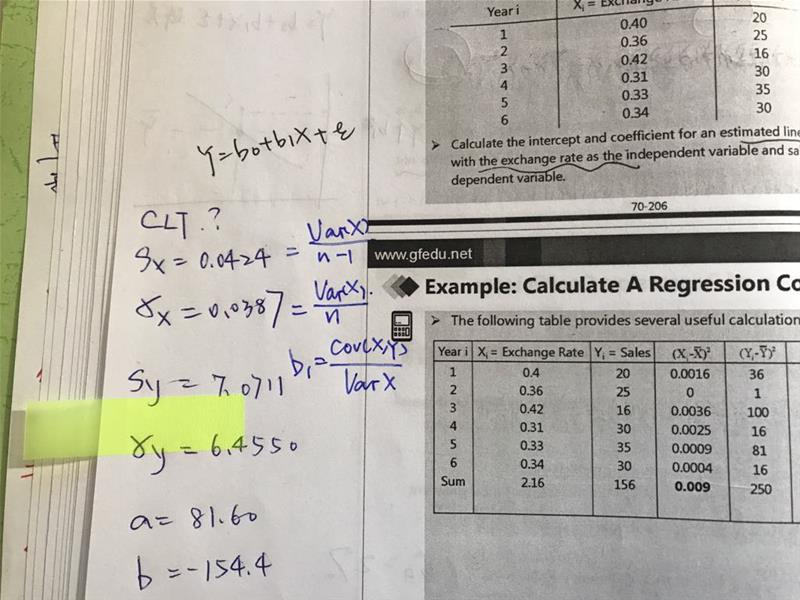 Year i
Xᵢ = Exchange
1 0.40 20
2 0.36 25
3 0.42 16
4 0.31 30
5 0.33 35
6 0.34 30
➤ Calculate the intercept and coefficient for an estimated line
with the exchange rate as the independent variable and
dependent variable.
70-206
Y=b0+b1X+ε
CLT.?
Sx = 0.0424 = Var(X) / n-1
σx = 0.0387 = Var(X) / n
b1 = Cov(X,Y) / Var X
Sy = 7.0711
σy = 6.4550
a = 81.60
b = -154.4
www.gfedu.net
Example: Calculate A Regression
➤ The following table provides several useful
Year i Xᵢ = Exchange Rate Yᵢ = Sales (Xᵢ-X̄)² (Yᵢ-Ȳ)²
1 0.4 20 0.0016 36
2 0.36 25 0 1
3 0.42 16 0.0036 100
4 0.31 30 0.0025 16
5 0.33 35 0.0009 81
6 0.34 30 0.0004 16
Sum 2.16 156 0.009 250